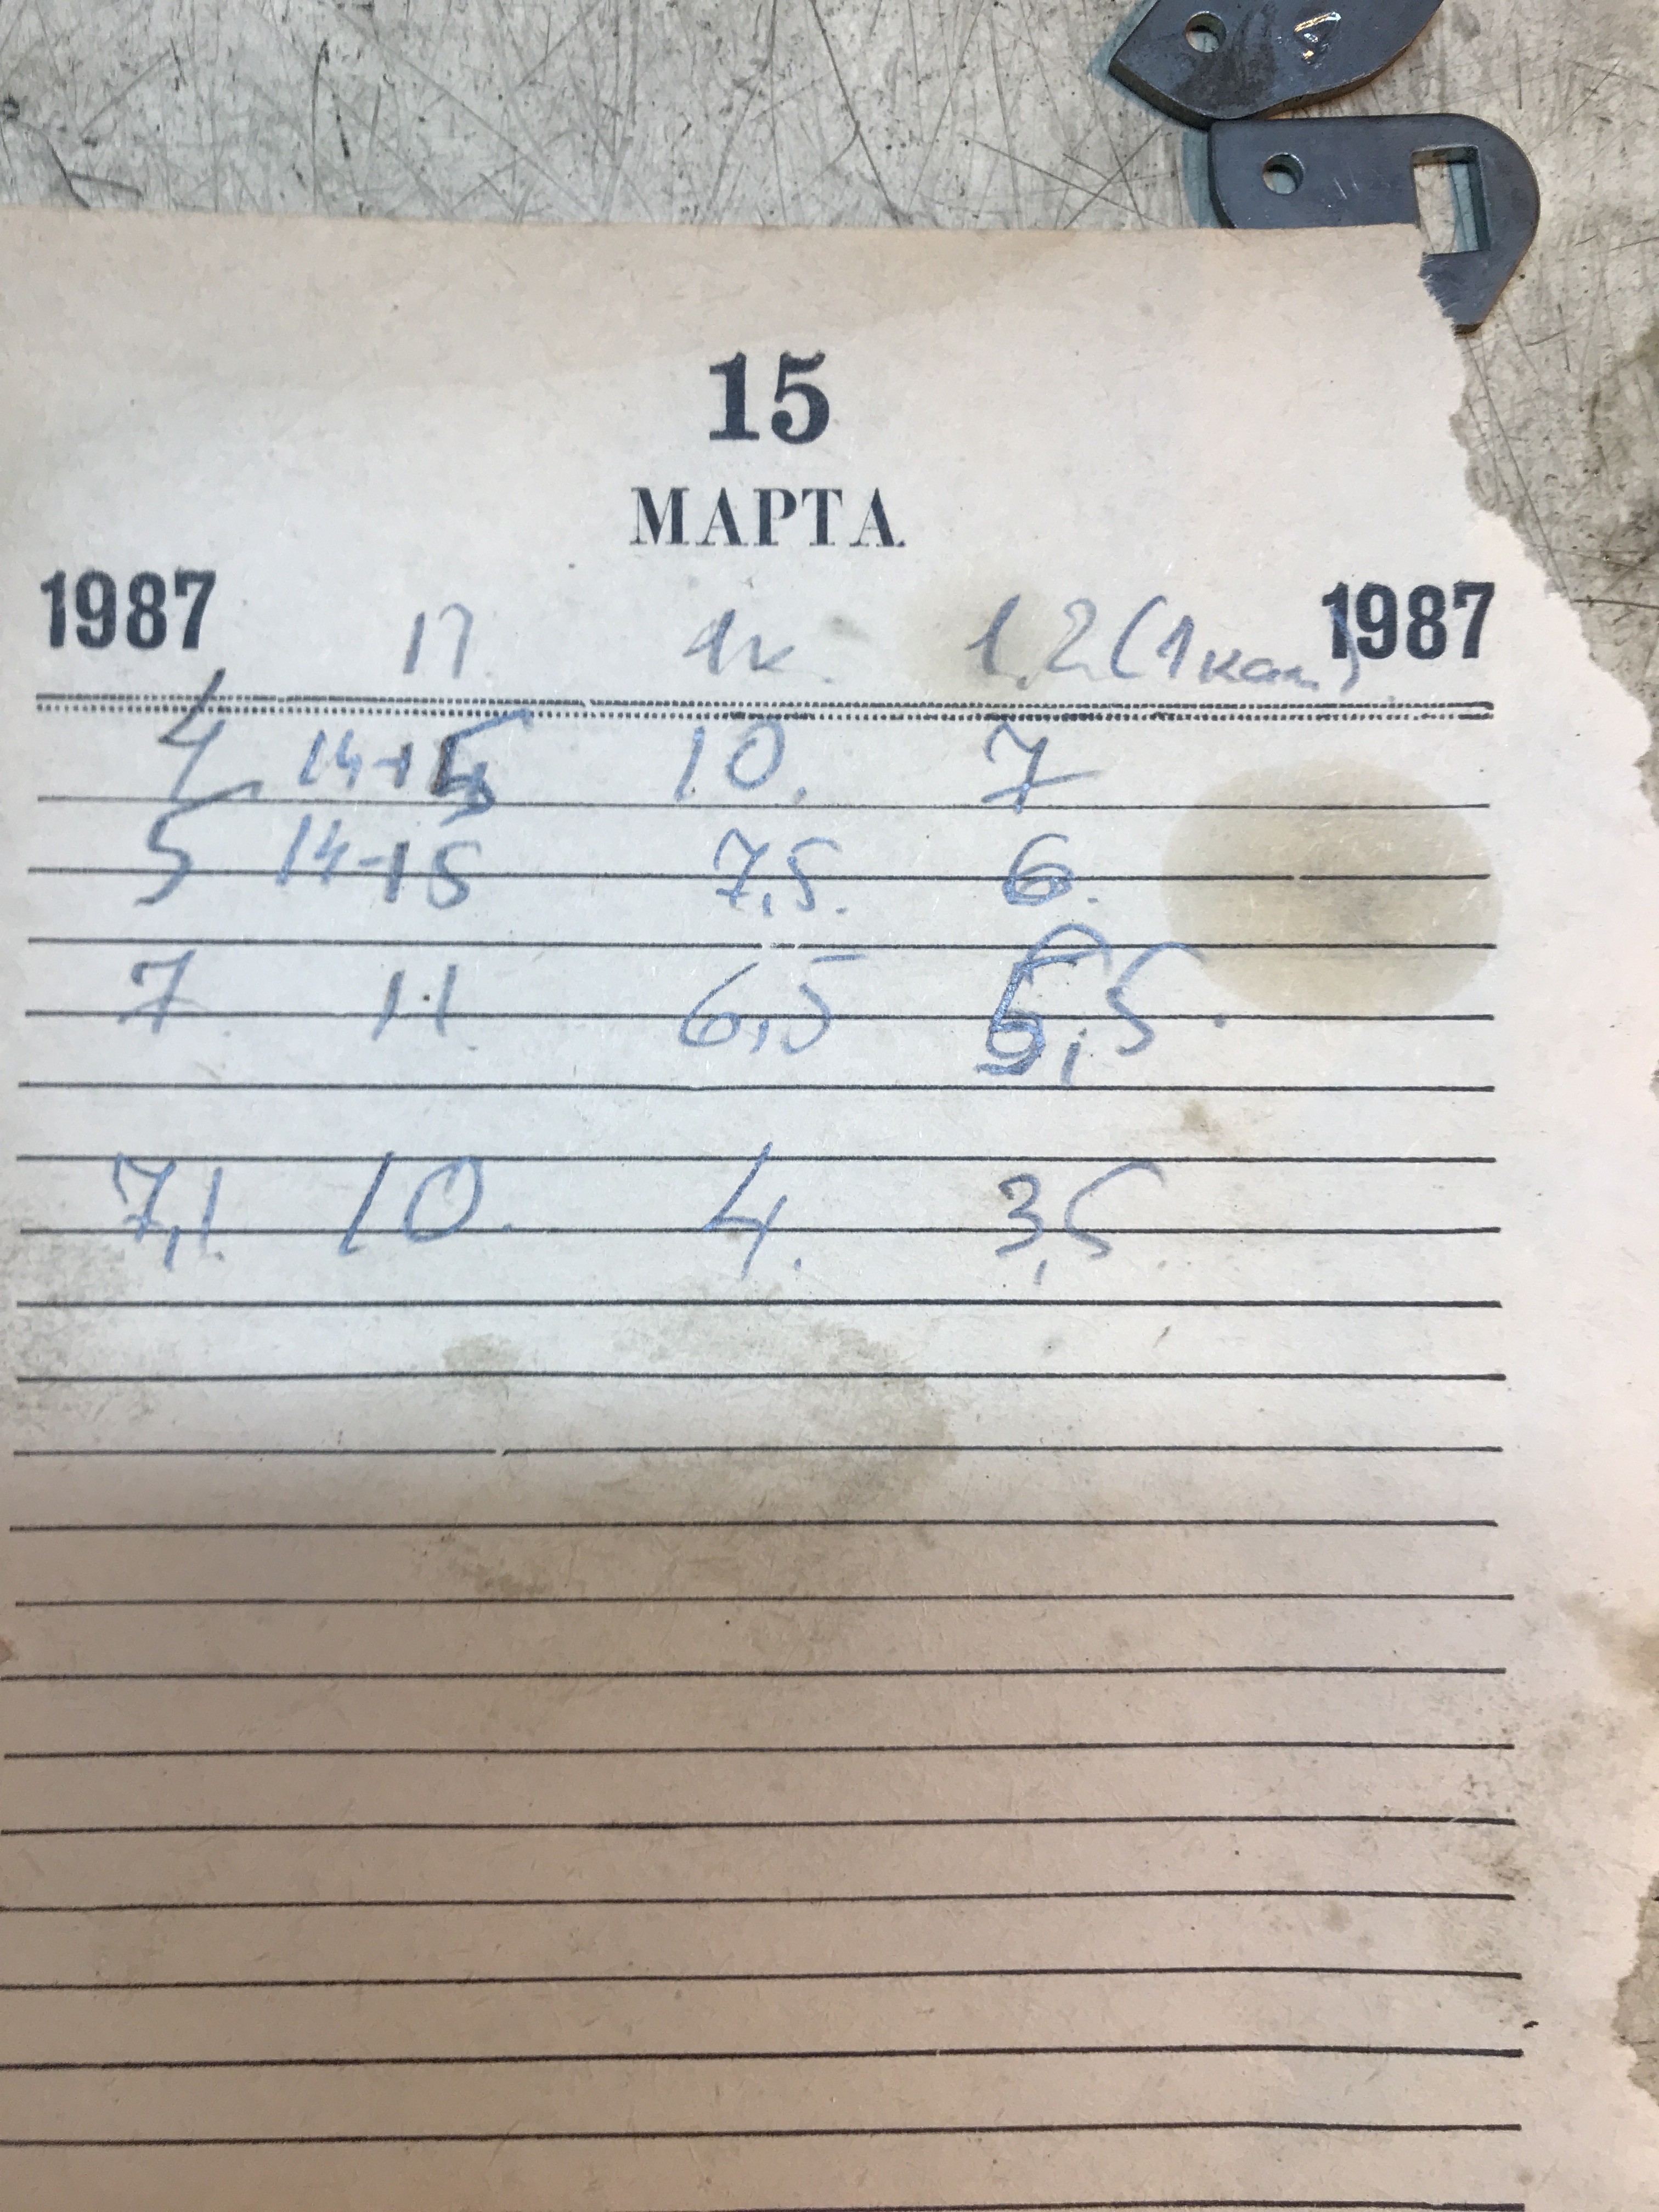 15
МАРТА
1987 1987
П. 1к. 1,2 (1 кат.)
4 14-15 10. 7
5 14-15 7,5. 6.
7. 11 6,5 5,5.
7,1 10. 4. 3,5